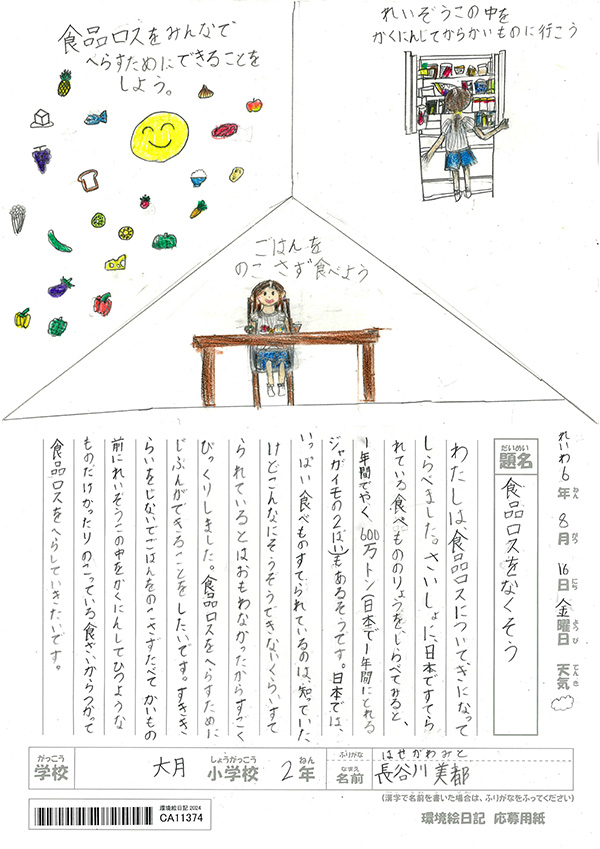 食品ロスをみんなで
へらすためにできることを
しよう。
れいぞうこの中を
かくにんしてからかいものに行こう
ごはんを
のこさず食べよう
れいわ6年8月16日金曜日 天気
ねん がつ にち ようび てんき
だいめい
題名
食品ロスをなくそう
わたしは、食品ロスについてきになって
しらべました。さいしょに、日本ですてら
れている食べもののりょうを、しらべてみると、
1年間でやく600万トン(日本で1年間にとれる
ジャガイモの2ばいもあるそうです。日本では、
いっぱい食べものすてられているのは、知っていた
けどこんなにそうぞうできないくらい、すて
られているとはおもわなかったからすごく
びっくりしました。食品ロスをへらすために
じぶんができることをしたいです。すきき
らいをしないでごはんをのこさずたべてかいもの
前にれいぞうこの中をかくにんしてひつような
ものだけかったりのこっている食ざいからつかって
食品ロスをへらしていきたいです。
がっこう
学校
大月
しょうがっこう
小学校
2年
ねん
ふりがな
はせがわみと
なまえ
名前
長谷川 美都
(漢字で名前を書いた場合は、ふりがなをふってください)
環境絵日記 2024
CA11374
環境絵日記 応募用紙